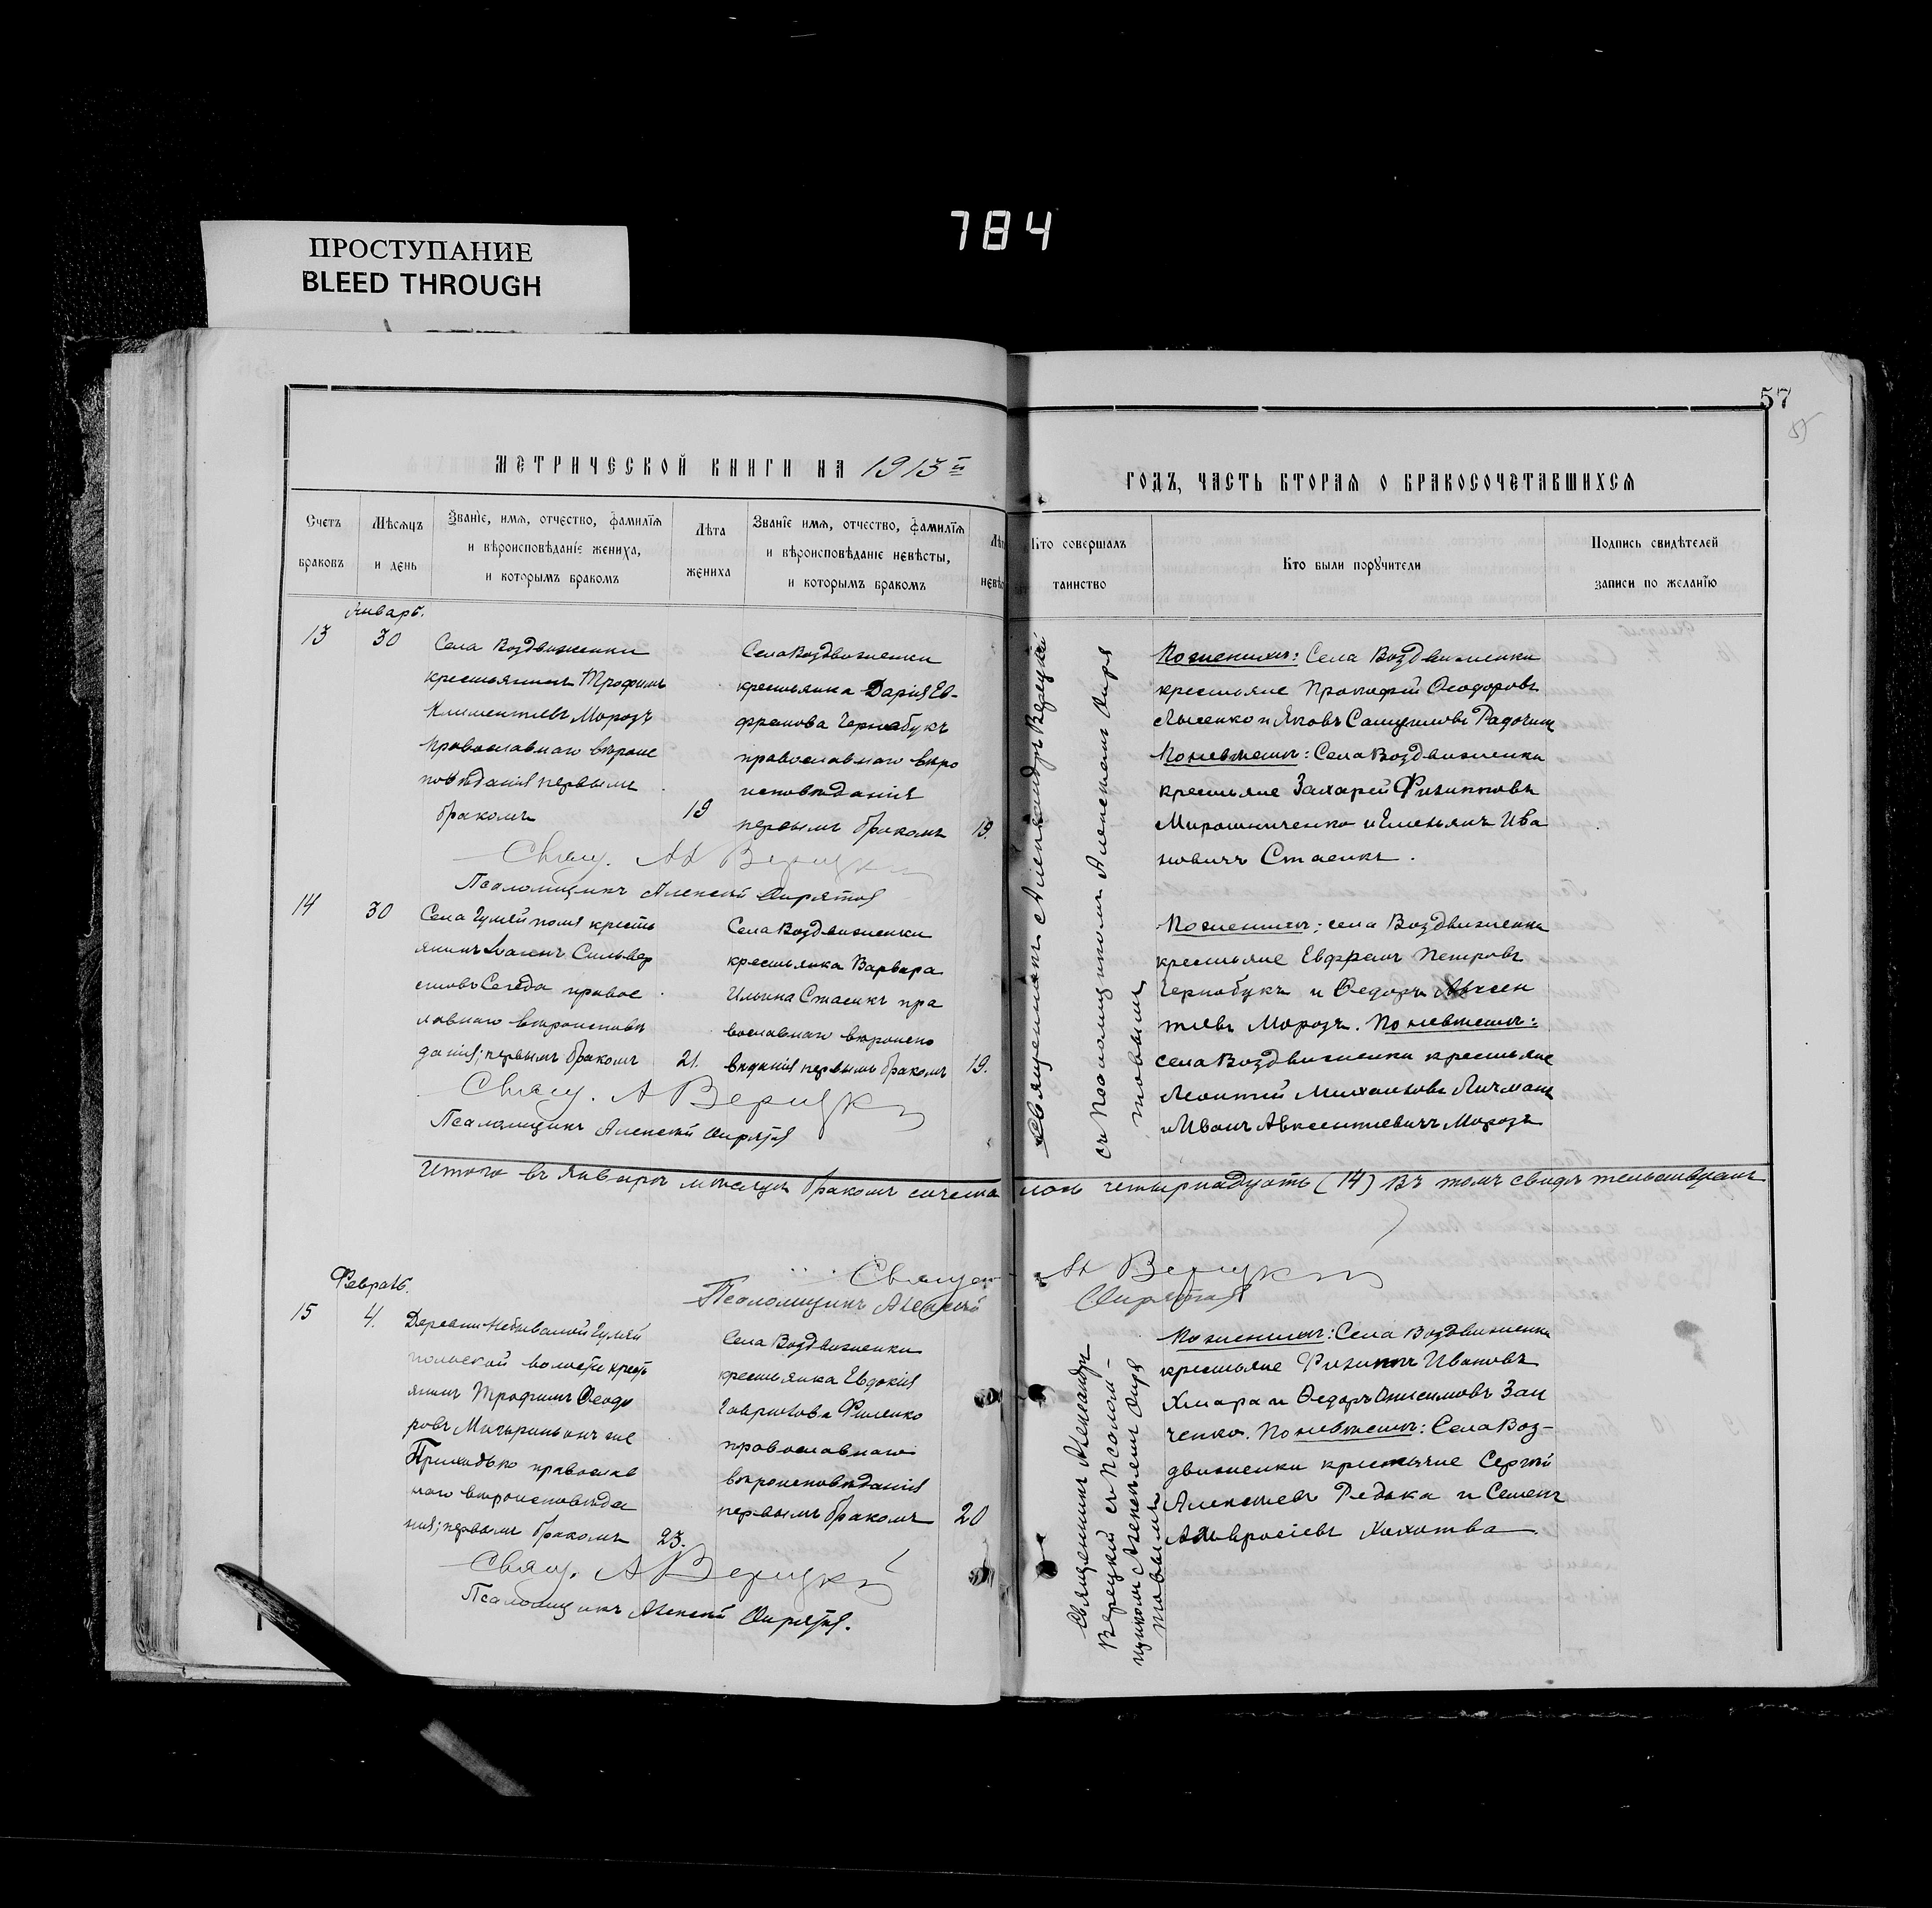 784
ПРОСТУПАНИЕ
BLEED THROUGH
57
МЕТРИЧЕСКОЙ КНИГИ НА 1913й
ГОДЪ, ЧАСТЬ ВТОРАЯ О БРАКОСОЧЕТАВШИХСЯ
Счетъ браковъ
Мѣсяцъ и день
Званіе, имя, отчество, фамилія
и вѣроисповѣданіе жениха,
и которымъ бракомъ
Лѣта жениха
Званіе имя, отчество, фамилія
и вѣроисповѣданіе невѣсты,
и которымъ бракомъ
Кто совершалъ таинство
Кто были поручители
Подпись свидѣтелей
записи по желанію
Январь.
13
30
Села Воздвиженки
крестьянинъ Трофимъ
Климентіевъ Морозъ
православнаго вѣроис
повѣданія первымъ
бракомъ
19
Села Воздвиженки
крестьянка Дарія Ев-
фремова Чернобукъ
православнаго вѣро
исповѣданія
первымъ бракомъ
19.
Священникъ Александръ Верецкій
съ псаломщикомъ Алексѣемъ
По женихѣ: Села Воздвиженки
крестьяне Прокофій Ѳеодоровъ
Лысенко и Яковъ Самуиловъ
По невѣстѣ: Села Воздвиженки
крестьяне Захарій Филипповъ
Мирошниченко и Емельянъ Ива
новичъ Стасикъ.
Свящ. Ал Верецкій
Псаломщикъ Алексѣй
14
30
Села Гуляйполя кресть
янинъ Іоаннъ Сильвер
стовъ Середа правос
лавнаго вѣроисповѣ
данія; первымъ бракомъ
21.
Села Воздвиженки
крестьянка Варвара
Ильина Стасикъ пра
вославнаго вѣроиспо
вѣданія первымъ бракомъ
19.
По женихѣ: села Воздвиженки
крестьяне Евфремъ Петровъ
Чернобукъ и Ѳедоръ Авксен
тіевъ Морозъ. По невѣстѣ:
села Воздвиженки крестьяне
Леонтій Михайловъ Личманъ
и Иванъ Авксентіевичъ Морозъ
Свящ. А Верецкій
Псаломщикъ Алексѣй
Итого въ январѣ мѣсяцѣ бракомъ сочета лось четырнадцать (14) въ томъ свидѣтельствуемъ
Священ. Ал Верецкій
Псаломщикъ Алексѣй
Февраль.
15
4.
Деревни Небывалой Гуляй
польской волости кресть
янинъ Трофимъ Ѳеодо
ровъ
Приходько православ
наго вѣроисповѣда
нія; первымъ бракомъ
23.
Села Воздвиженки
крестьянка Евдокія
Гаврилова
православнаго
вѣроисповѣданія
первымъ бракомъ
20
Священникъ Александръ
Верецкій съ псалом-
щикомъ Алексѣемъ
По женихѣ: Села Воздвиженки
крестьяне Филиппъ Ивановъ
Хмара и Ѳедоръ Онисимовъ Зай
ченко. По невѣстѣ: Села Воз-
движенки крестьяне Сергій
Алексѣевъ Редька и Семенъ
Амвросіевъ
Свящ. А Верецкій
Псаломщикъ Алексѣй